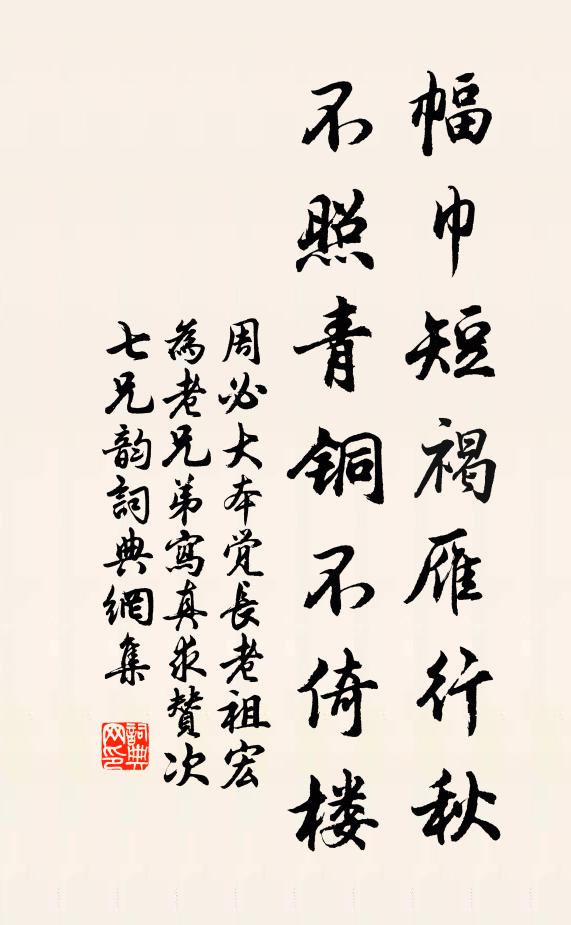 幅巾短褐雁行秋
不照青铜不倚楼
周必大本觉長老祖宏
為老兄弟寫真求贊次
七兄韵詞典網集
詞典网印